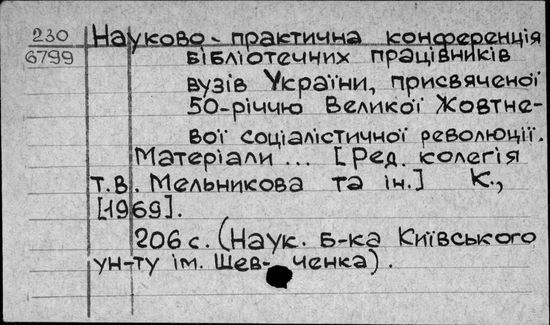 230 Науково-практична конференція
6799 бібліотечних працівників
вузів України, присвяченої
50-річчю Великої Жовтне-
вої соціалістичної революції.
Матеріали ... [Ред. колегія
т.в. Мельникова та ін.] К.,
[1969].
206 с. (Наук. б-ка Київського
ун-ту ім. Шев- ченка).